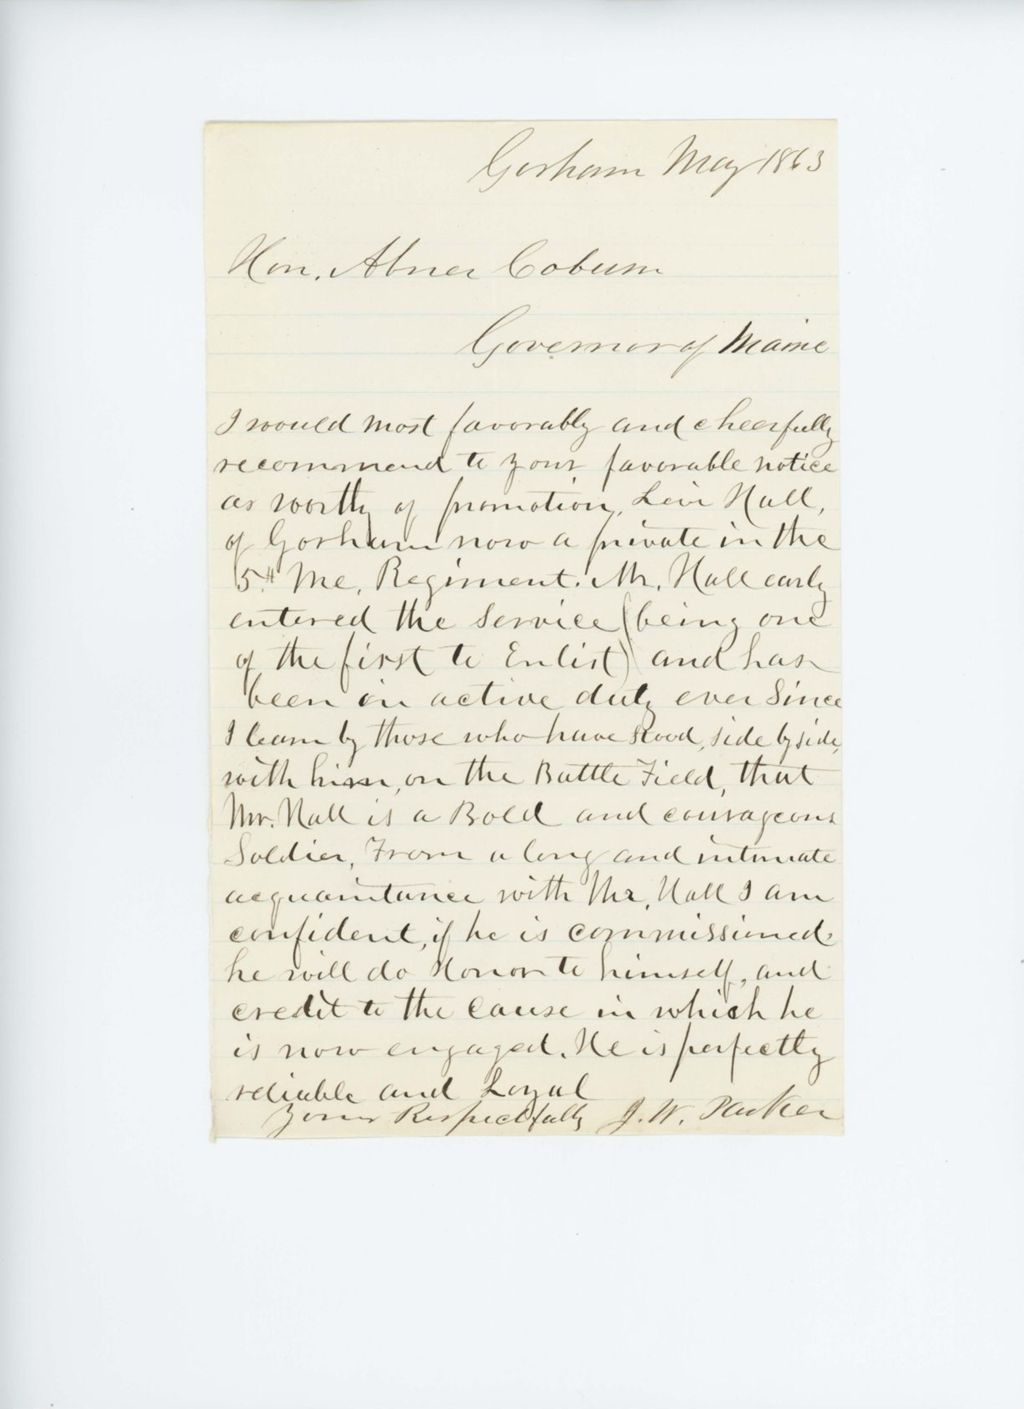 Gorham May 1863
Hon. Abner Coburn
Governor of Maine
I would most favorably and cheerfully
recommend to your favorable notice
as worthy of promotion, Levi Hall,
of Gorham now a private in the
5th Me. Regiment. Mr. Hall early
entered the Service (being one
of the first to Enlist) and has
been in active duty ever Since
I learn by those who have stood, side by side,
with him, on the Battle Field, that
Mr. Hall is a Bold and courageous
Soldier, From a long and intimate
acquaintance with Mr. Hall I am
confident, if he is commissioned
he will do Honor to himself, and
credit to the Cause in which he
is now engaged. He is perfectly
reliable and Loyal
Yours Respectfully J. W. Parker